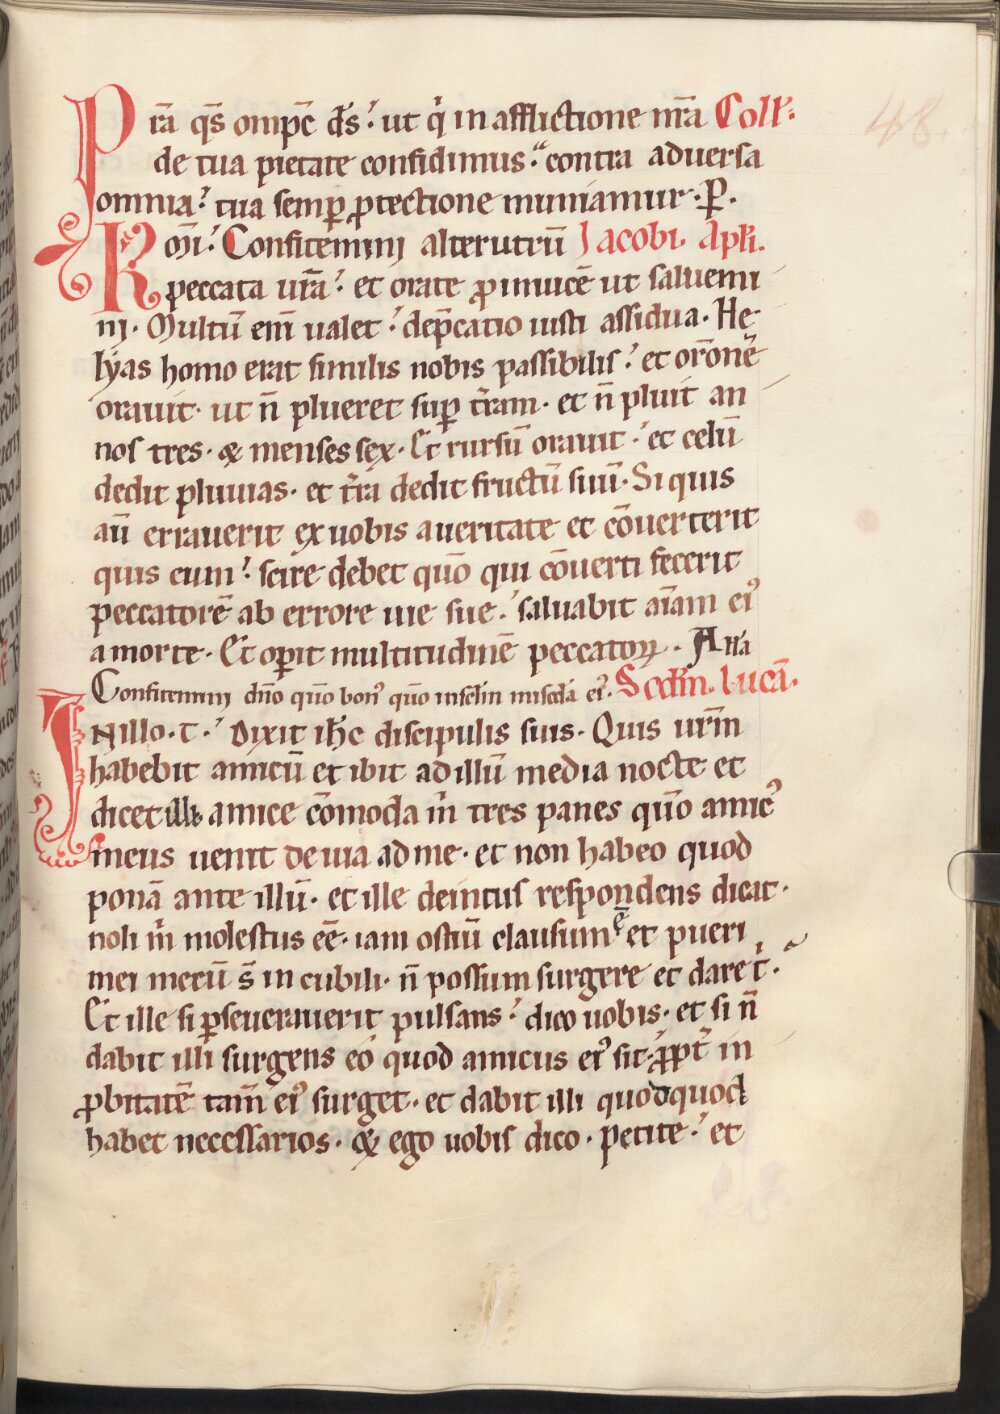 48.
P ra̅ qs̅ omp̅c ds̅. ut q̍ in afflictione nr̅a Coll̅.
de tua pietate confidimus. contra aduersa
omnia. tua semꝑ ꝓtectione muniamur. P̲.
K mi̅. Confitemini alterutru̅ Jacobi. Apl̅i.
peccata ur̅a. et orate ꝓ inuice̅ ut saluemi
ni. Multu̅ eni̅ ualet. dep̅catio iusti assidua. He
lyas homo erat similis nobis passibilis. et or̅one̅
orauit. ut n̅ plueret suꝑ t̅ram. et n̅ pluit an
nos tres. & menses sex. Et rursu̅ orauit. et celu̅
dedit pluuias. et t̅ra dedit fructu̅ suu̅. Si quis
au̅ errauerit ex uobis a ueritate et co̅uerterit
quis eum. scire debet quo̅ qui co̅uerti fecerit
peccatore̅ ab errore uie sue. saluabit ai̅am ei᾽
a morte. Et oꝑit multitudine̅ peccatoꝝ. Alla
Confitemini dn̅o quo̅ bon᾽ quo̅ insel̅m mise̅da ei᾽. Scdm̅. lucā.
IN illo. t. Dixit ih̅c discipulis suis. Quis ur̅m
habebit amicu̅ et ibit ad illu̅ media nocte et
dicet illi amice co̅moda m̍ tres panes quo̅ amic᾽
meus uenit de uia ad me. et non habeo quod
pona̅ ante illu̅. et ille deintus respondens dicat.
noli m̍ molestus ee̅. iam ostiu̅ clausum e̅ et pueri
mei mecu̅ s̅ in cubili. n̅ possum surgere et dare t̍.
Et ille si ꝑseuerauerit pulsans. dico uobis. et si n̅
dabit illi surgens eo quod amicus ei᾽ sit. ꝓpt̍ in
ꝓbitate̅ tam̅ ei᾽ surget. et dabit illi quodquod
habet necessarios. & ego uobis dico. petite. et